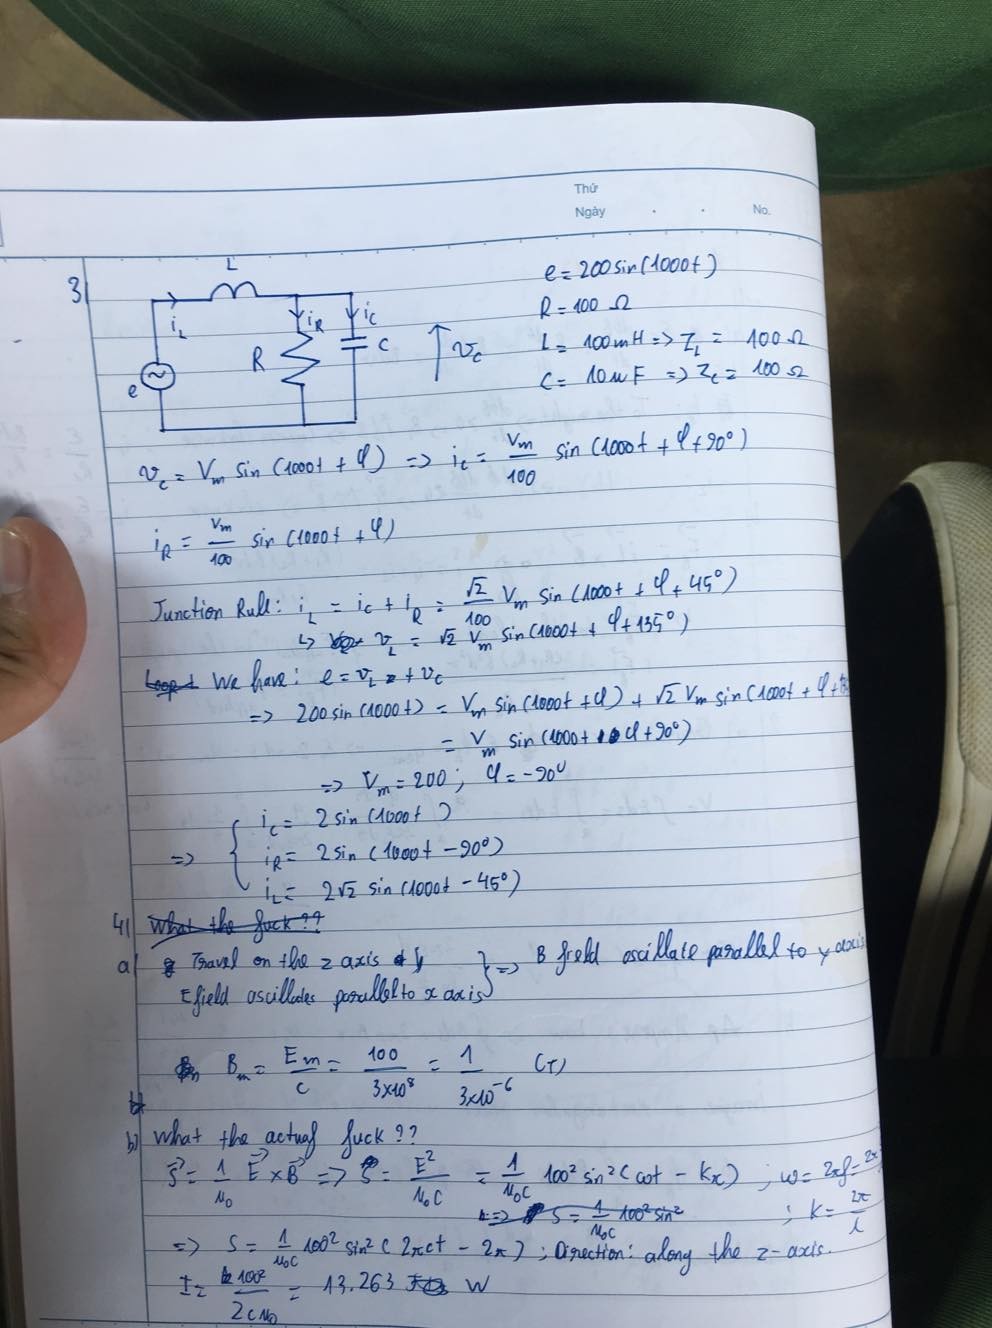 Thứ
Ngày . . No.
3|
L
i_L
i_R
i_C
R
C
e
v_c
e = 200 sin(1000t)
R = 100 Ω
L = 100mH => Z_L = 100 Ω
C = 10 uF => Z_C = 100 Ω
v_c = V_m sin(1000t + φ) => i_c = V_m/100 sin(1000t + φ + 90°)
i_R = V_m/100 sin(1000t + φ)
Junction Rule: i_L = i_C + i_R = √2/100 V_m sin(1000t + φ + 45°)
↳ v_L = √2 V_m sin(1000t + φ + 135°)
Loop We have: e = v_L + v_c
=> 200 sin(1000t) = V_m sin(1000t + φ) + √2 V_m sin(1000t + φ +
= V_m sin(1000t + φ + 90°)
=> V_m = 200 ; φ = -90°
=> { i_C = 2 sin(1000t)
i_R = 2 sin(1000t - 90°)
i_L = 2√2 sin(1000t - 45°)
4| What the fuck??
a| Travel on the z axis
E field oscillates parallel to x axis } => B field oscillate parallel to y axis
B_m = E_m/c = 100/3x10^8 = 1/3x10^-6 (T)
b) What the actual fuck??
S⃗ = 1/μ₀ E⃗ x B⃗ => S = E²/μ₀c = 1/μ₀c 100² sin²(ωt - kx) ; ω = 2πf = 2π
=> S = 1/μ₀c 100² sin² ; k = 2π/λ
=> S = 1/μ₀c 100² sin²(2πct - 2π) ; Direction: along the z-axis.
I = 100²/2cμ₀ = 13.263 W